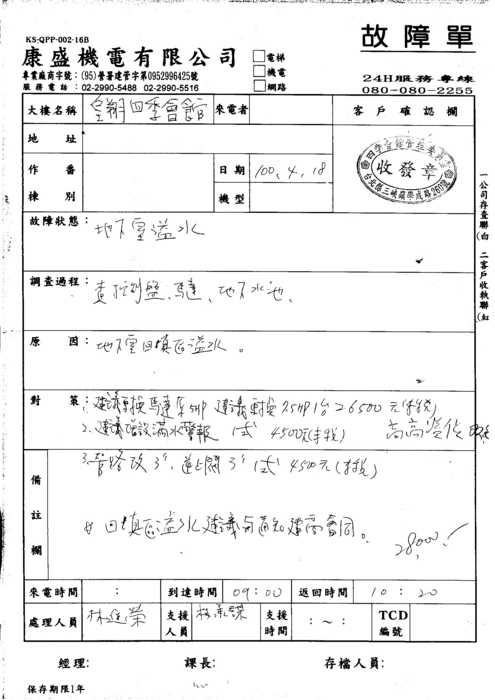 KS-QPP-002-16B
故障單
康盛機電有限公司
專業廠商字號：(95)營署建管字第0952996425號
服務電話：02-2990-5488 02-2990-5516
□電梯
□機電
□網路
24H服務專線
080-080-2255
大樓名稱 皇翔四季會館 來電者 客戶確認欄
地址
作番 日期 100.4.18
棟別 機型
收發章
一公司存查聯(白 二客戶收執聯(紅
故障狀態：地下室溢水
調查過程：查控制盤、馬達、地下水池、
原因：地下室回填區溢水。
對策：1.建議更換馬達原5HP 建議更換7.5HP 1台 26500元(未稅)
2.建議增設滿水警報 1式 4500元(未稅)
3.管路改3" 逆止閥3" 1式 4500元(未稅)
備註欄
回填區溢水建議另通知建商會同。
28000
來電時間 ： 到達時間 09:00 返回時間 10:20
處理人員 林進榮 支援人員 支援時間 ：～： TCD編號
經理: 課長: 存檔人員:
保存期限1年